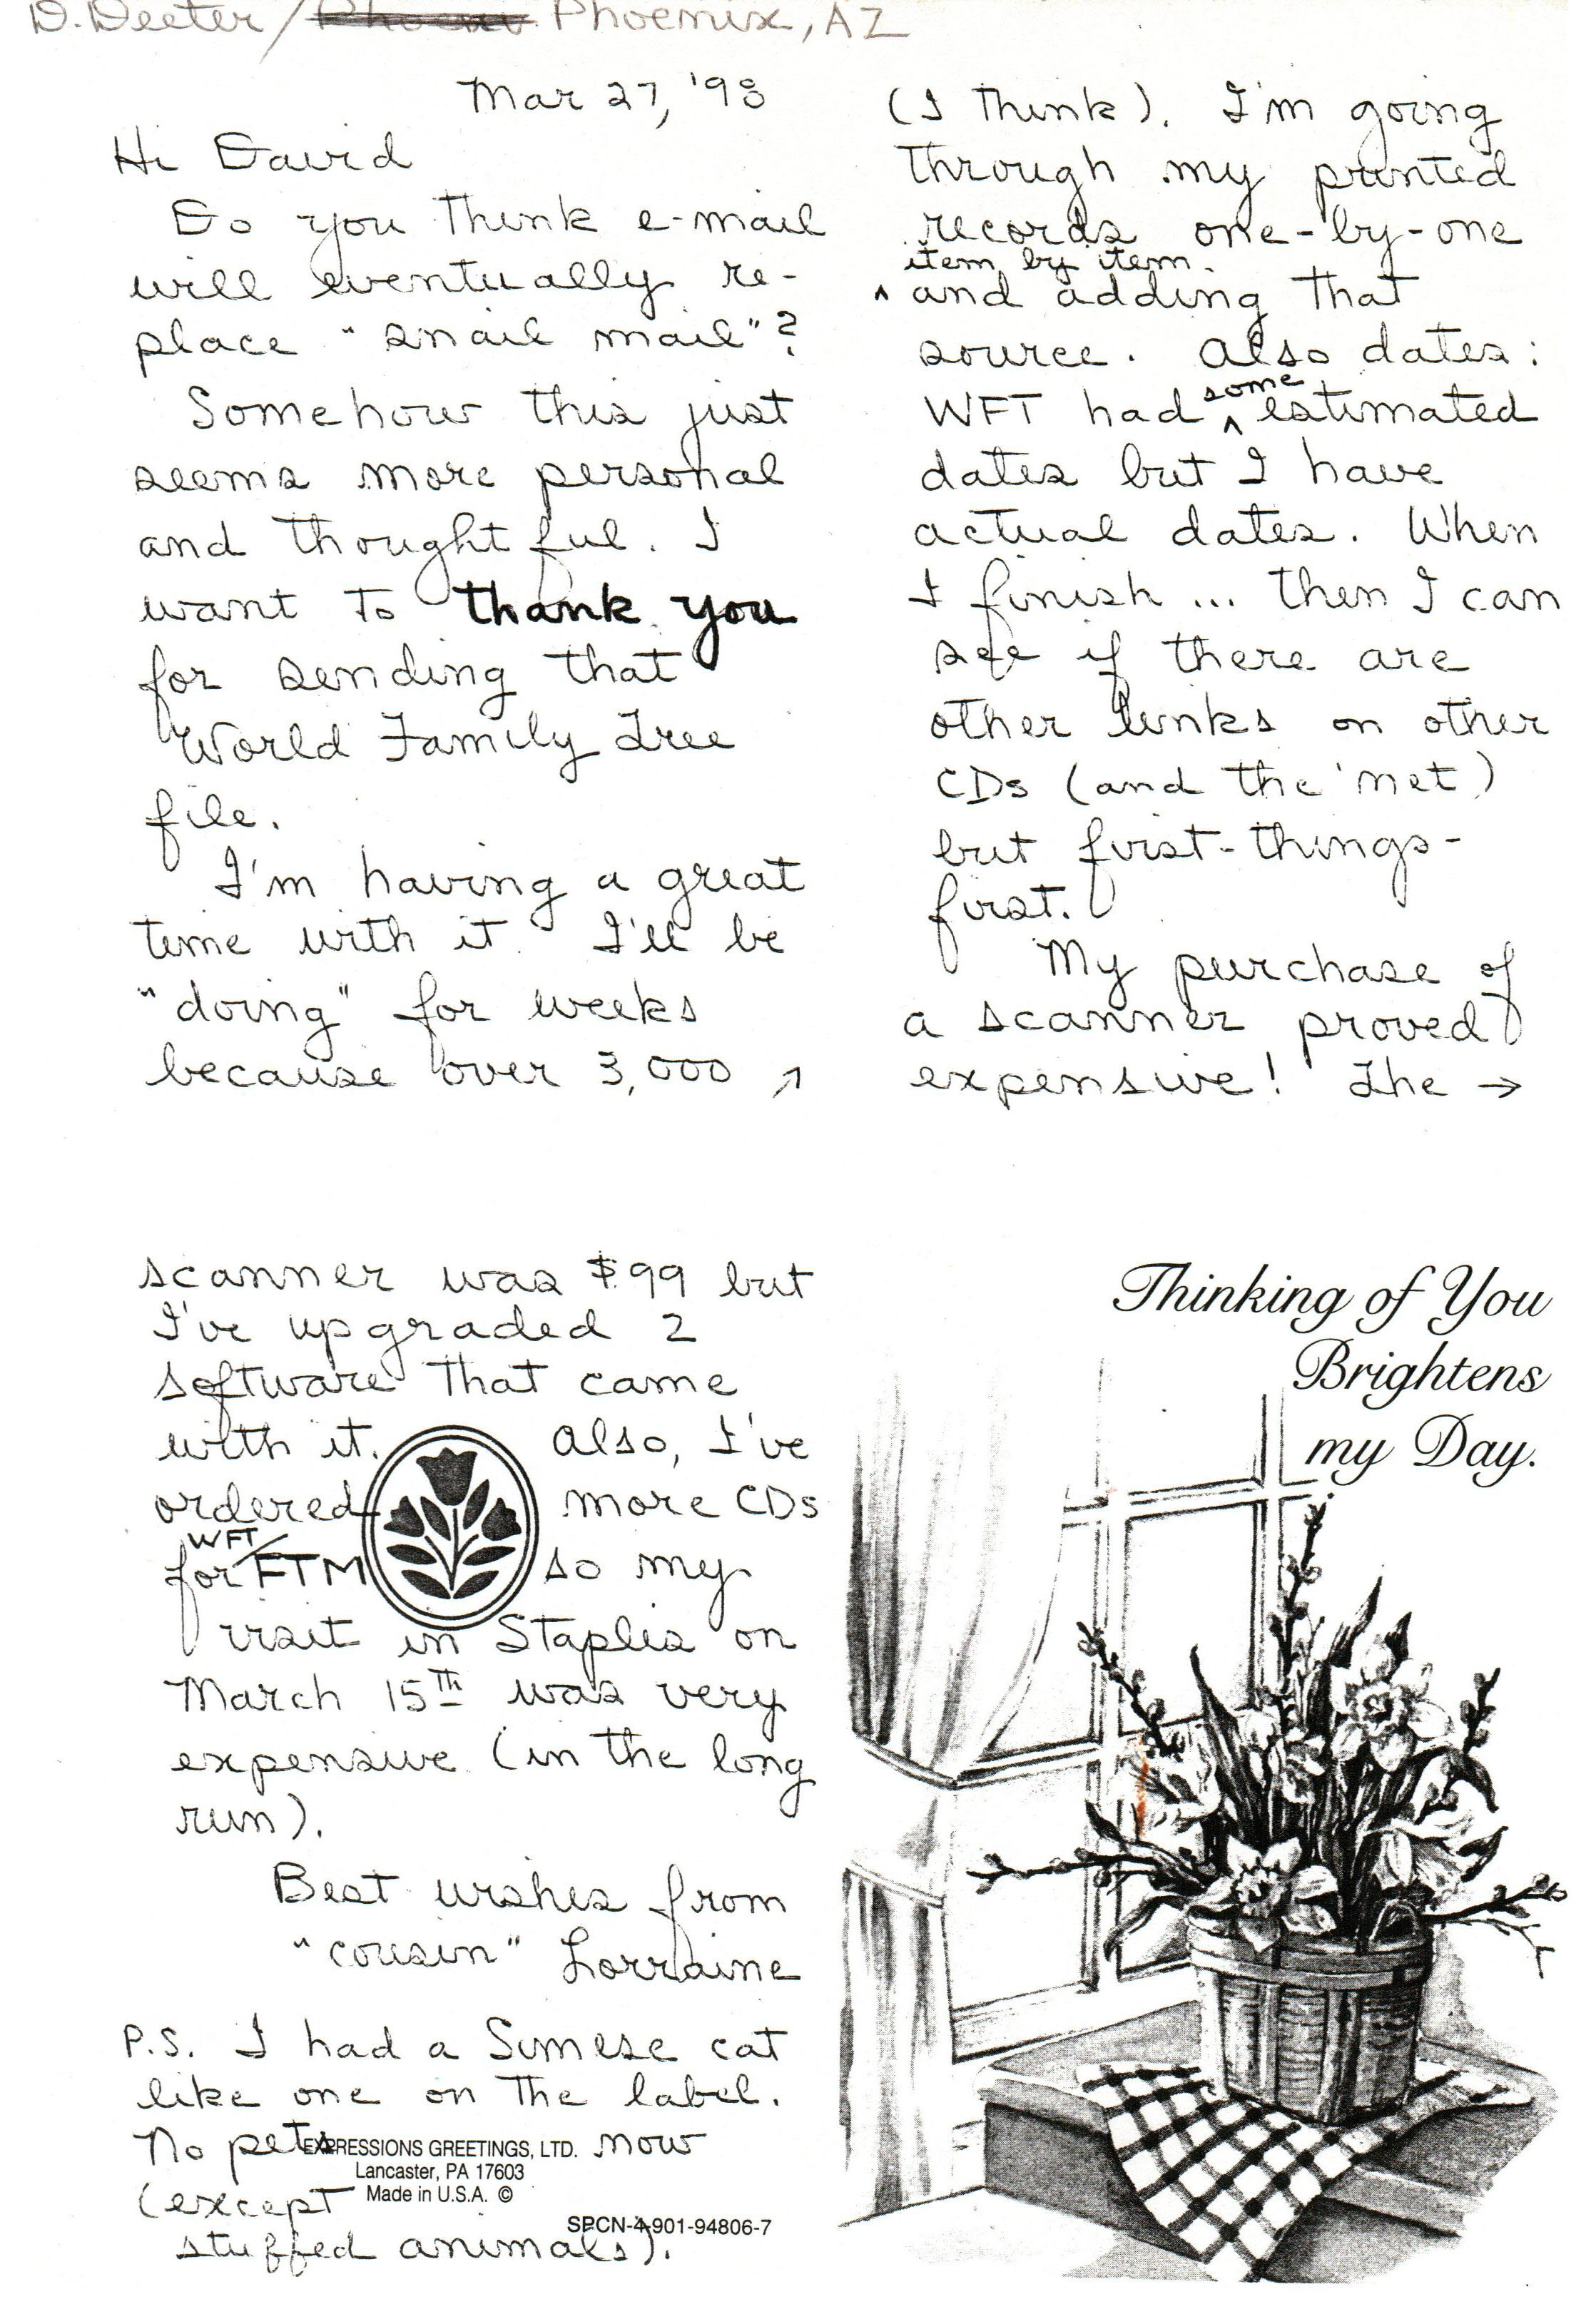 D. Deeter / Phoenix, AZ
Mar 27, '98
Hi David
Do you think e-mail
will eventually re-
place "snail mail"?
Somehow this just
seems more personal
and thoughtful. I
want to thank you
for sending that
World Family Tree
file.
I'm having a great
time with it. I'll be
"doing" for weeks
because over 3,000 ↗
(I think). I'm going
through my printed
records one-by-one
item by item.
^ and adding that
source. Also dates:
WFT had ^ some estimated
dates but I have
actual dates. When
I finish ... then I can
see if there are
other links on other
CDs (and the 'net)
but first-things-
first.
My purchase of
a scanner proved
expensive! The →
scanner was $99 but
I've upgraded 2
software that came
with it. Also, I've
ordered more CDs
WFT/
for FTM so my
visit in Staples on
March 15th was very
expensive (in the long
run).
Best wishes from
"cousin" Lorraine
P.S. I had a Simese cat
like one on the label.
No pets now
(except
stuffed animals).
EXPRESSIONS GREETINGS, LTD.
Lancaster, PA 17603
Made in U.S.A. ©
SPCN-4-901-94806-7
Thinking of You
Brightens
my Day.